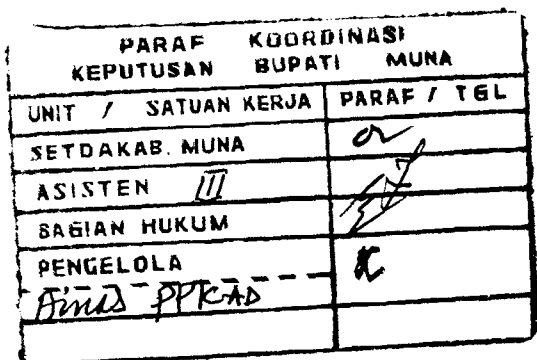 PARAF KOORDINASI
KEPUTUSAN BUPATI MUNA
UNIT / SATUAN KERJA PARAF / TGL
SETDAKAB. MUNA
ASISTEN III
BAGIAN HUKUM
PENGELOLA
Dinas PPKAD